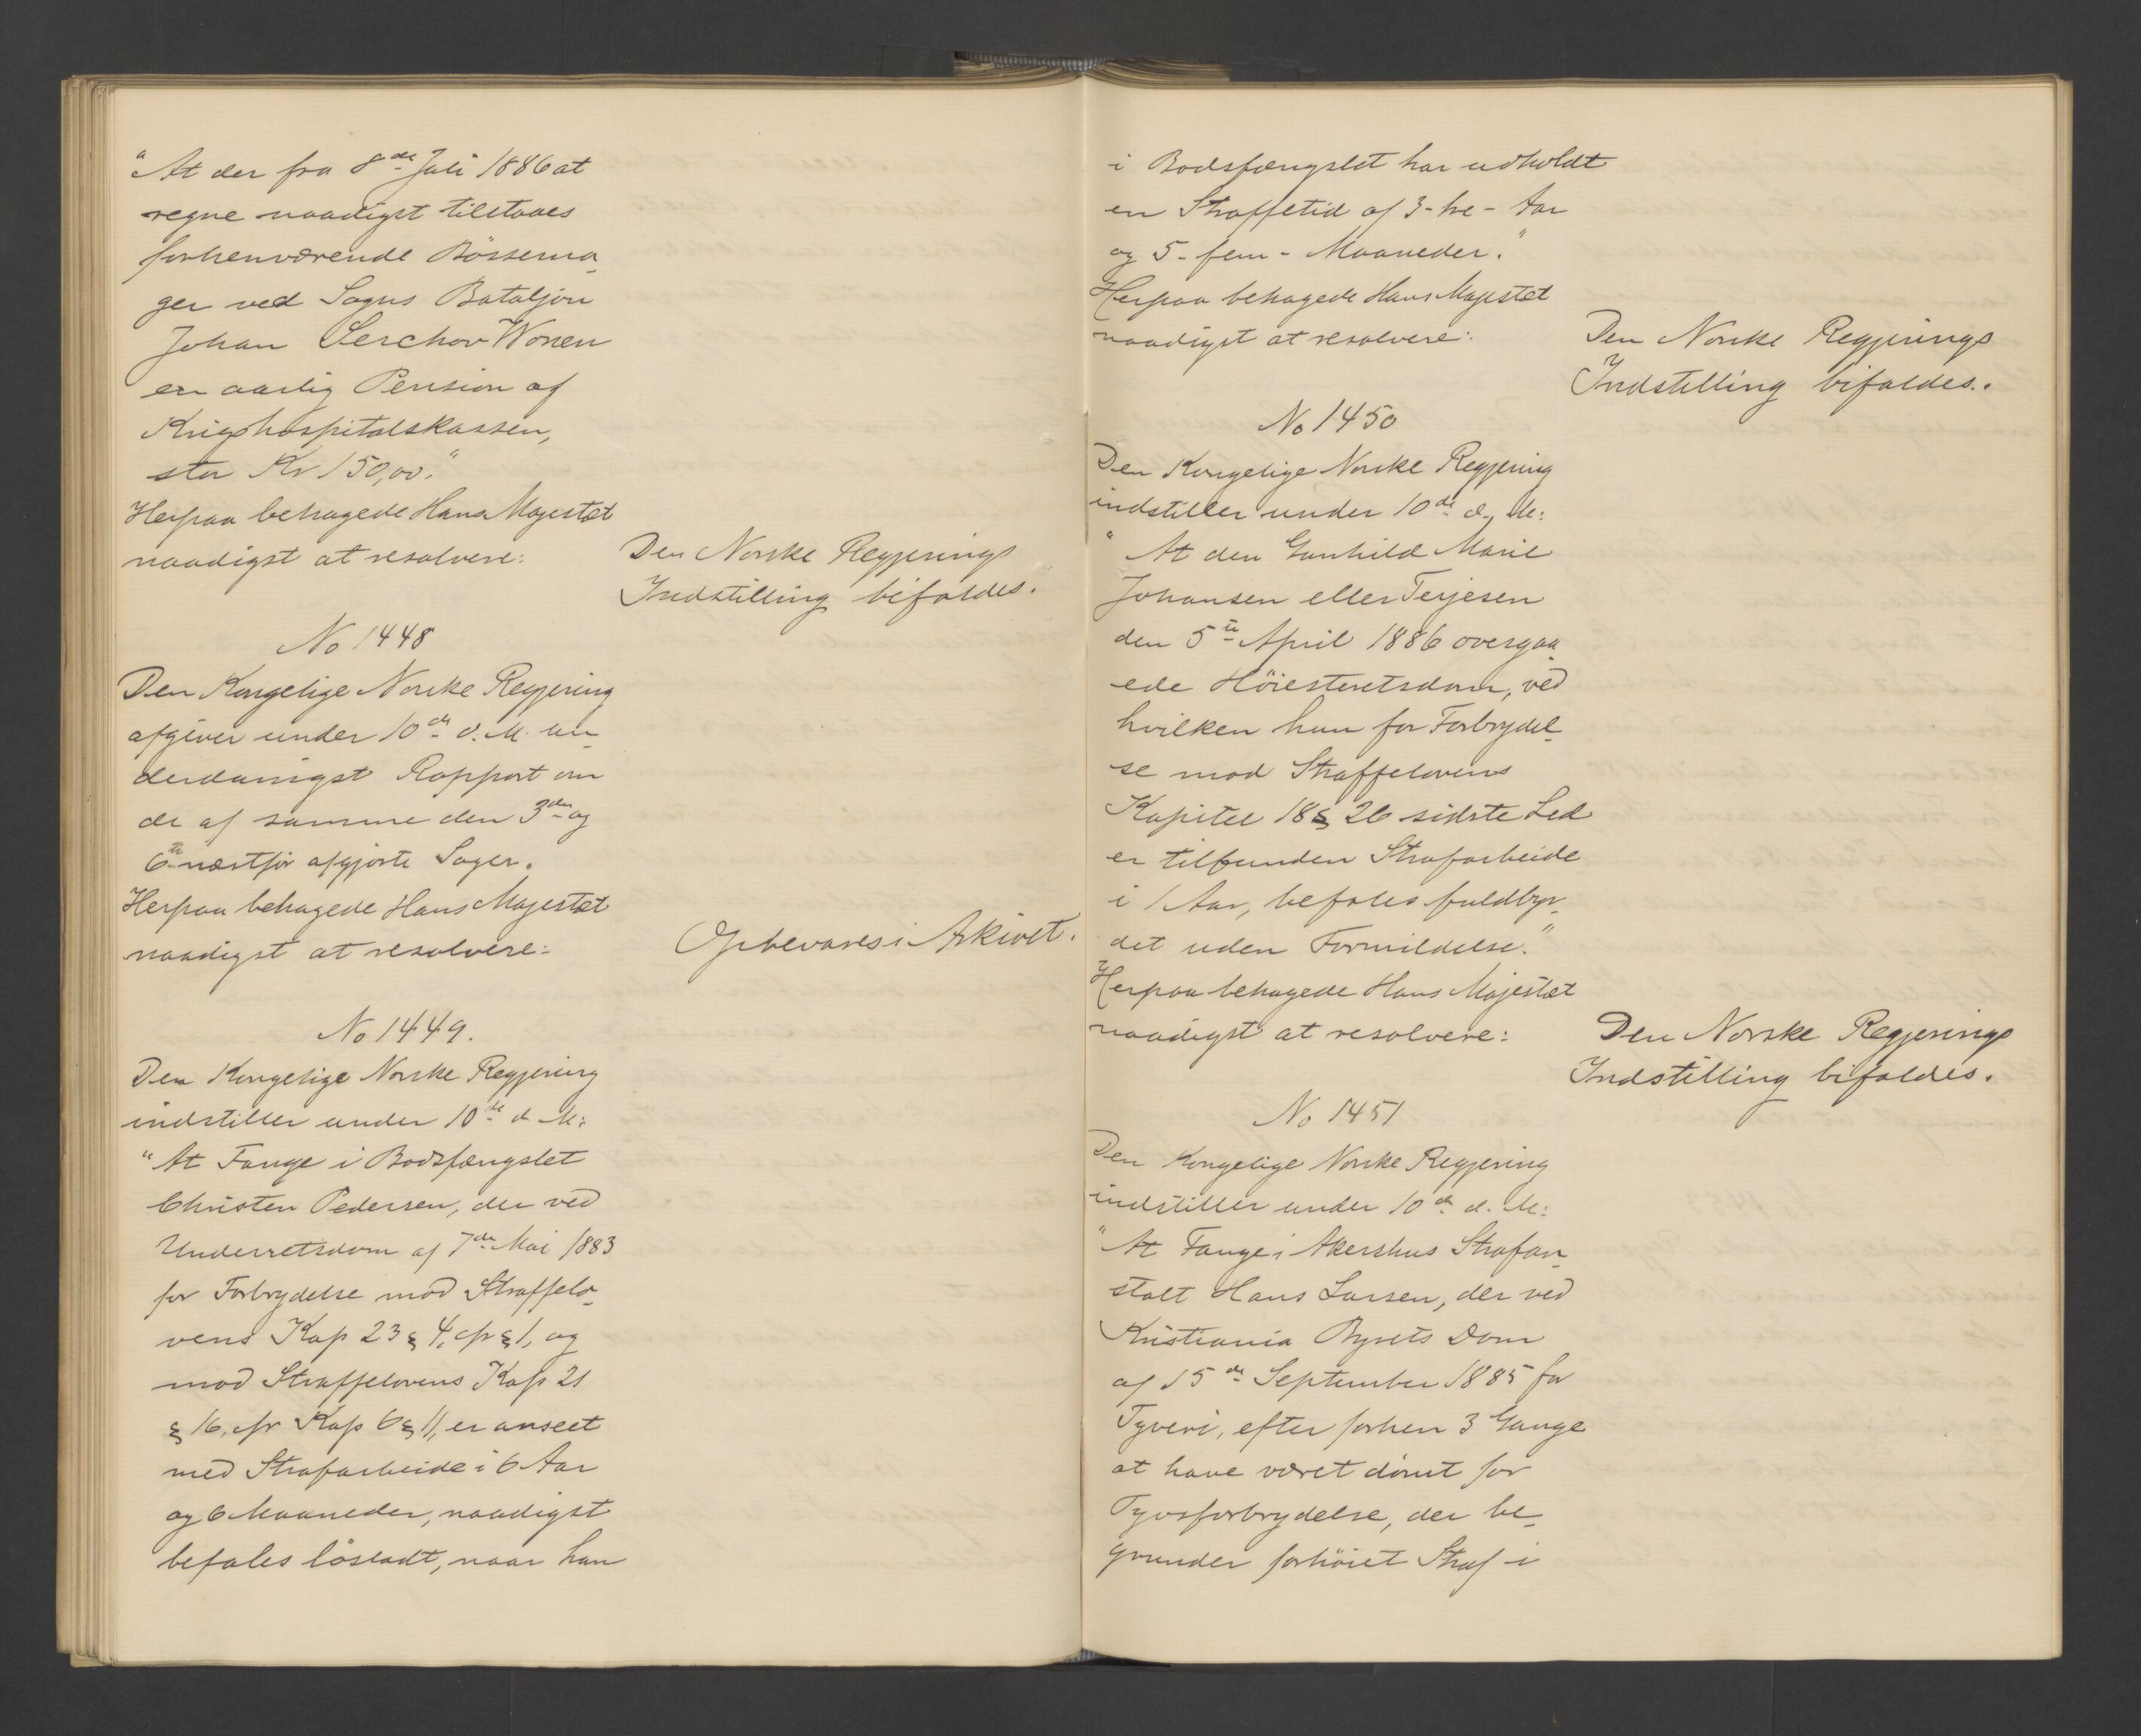 "At der fra 8de Juli 1886 at
regne naadigst tilstaaes
forhenværende Bössema-
ger ved Sogns Bataljon
Johan Lerchov Wonen
en aarlig Pension af
Krigshospitalskassen,
stor Kr 150,00."
Herpaa behagede Hans Majestæt
naadigst at resolvere:
Den Norske Regjerings
Indstilling bifaldes.
No 1448
Den Kongelige Norske Regjering
afgiver under 10de d. M. un-
derdanigst Rapport om
de af samme den 3die og
6te næstför afgjorte Sager.
Herpaa behagede Hans Majestæt
naadigst at resolvere:
Opbevares i Arkivet.
No 1449.
Den Kongelige Norske Regjering
indstiller under 10de d. M:
"At Fange i Bodsfængslet
Christen Pedersen, der ved
Underretsdom af 7de Mai 1883
for Forbrydelse mod Straffelo-
vens Kap 23 § 4, cfr § 1, og
mod Straffelovens Kap 21
§ 16, cfr Kap 6 § 11, er anseet
med Strafarbeide i 6 Aar
og 6 Maaneder, naadigst
befales lösladt, naar han
i Bodsfængslet har udholdt
en Straffetid af 3 - tre - Aar
og 5 - fem - Maaneder."
Herpaa behagede Hans Majestæt
naadigst at resolvere:
Den Norske Regjerings
Indstilling bifaldes.
No 1450
Den Kongelige Norske Regjering
indstiller under 10de d. M:
"At den Gunhild Marie
Johansen eller Terjesen
den 5te April 1886 overgaa-
ede Höiesteretsdom, ved
hvilken hun for Forbrydel-
se mod Straffelovens
Kapitel 18 § 26 sidste Led
er tilfunden Strafarbeide
i 1 Aar, befales fuldbyr-
det uden Formildelse."
Herpaa behagede Hans Majestæt
naadigst at resolvere:
Den Norske Regjerings
Indstilling bifaldes.
No 1451
Den Kongelige Norske Regjering
indstiller under 10de d. M:
"At Fange i Akershus Strafan-
stalt Hans Larsen, der ved
Kristiania Byrets Dom
af 15de September 1885 for
Tyveri, efter forhen 3 Gange
at have været dömt for
Tyvsforbrydelse, der be-
grunder forhöiet Straf i